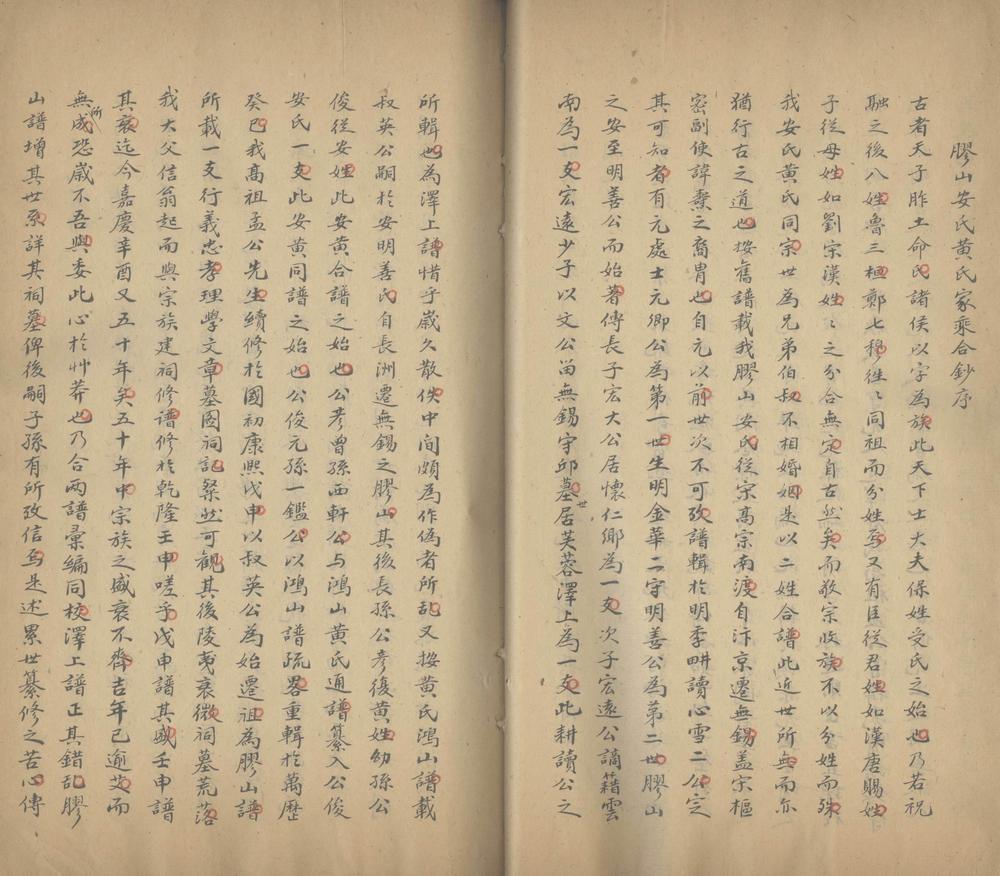 膠山安氏黃氏家乘合鈔序
古者天子胙土命氏諸侯以字為族此天下士大夫保姓受氏之始也乃若祝
融之後八姓魯三桓鄭七穆往〻同祖而分姓焉又有臣從君姓如漢唐賜姓
子從母姓如劉宗漢姓〻之分合無定自古然矣而敬宗收族不以分姓而殊
我安氏黃氏同宗世為兄弟伯叔不相婚姻是以二姓合譜此近世所無而亦
猶行古之道也按舊譜載我膠山安氏從宋高宗南渡自汴京遷無錫盖宋樞
密副使諱燾之裔胄也自元以前世次不可攷譜輯於明季畊讀心雪二公定
其可知者有元處士元卿公為第一世生明金華二守明善公為第二世膠山
之安至明善公而始著傳長子宏大公居懷仁鄉為一支次子宏遠公謫籍雲
南為一支宏遠少子以文公留無錫守邱墓世居芙蓉澤上為一支此耕讀公之
所輯也為澤上譜惜乎嵗久散佚中間頗為作偽者所乱又按黃氏鴻山譜載
叔英公嗣於安明善氏自長洲遷無錫之膠山其後長孫公彥復黃姓幼孫公
俊從安姓此安黃合譜之始也公彥曾孫西軒公与鴻山黃氏通譜纂入公俊
安氏一支此安黃同譜之始也公俊元孫一鑑公以鴻山譜疏畧重輯於萬歷
癸巳我高祖孟公先生續修於國初康熙戊申以叔英公為始遷祖為膠山譜
所載一支行義忠孝理學文章墓圖祠記粲然可觀其後陵夷衰微祠墓荒落
我大父信翁起而與宗族建祠修譜修於乾隆壬申嗟乎戊申譜其盛壬申譜
其衰迄今嘉慶辛酉又五十年矣五十年中宗族之盛衰不齊吉年已逾艾而
無所成恐嵗不吾與委此心於艸莽也乃合兩譜彙編同校澤上譜正其錯乱膠
山譜增其世系詳其祠墓俾後嗣子孫有所攷信焉是述累世纂修之苦心傳